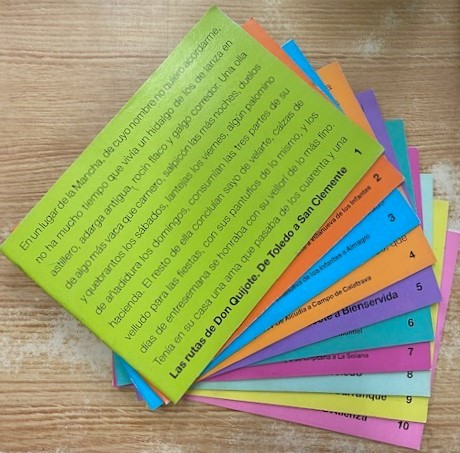 En un lugar de la Mancha, de cuyo nombre no quiero acordarme,
no ha mucho tiempo que vivía un hidalgo de los de lanza en
astillero, adarga antigua, rocín flaco y galgo corredor. Una olla
de algo más vaca que carnero, salpicón las más noches, duelos
y quebrantos los sábados, lantejas los viernes, algún palomino
de añadidura los domingos, consumían las tres partes de su
hacienda. El resto de ella concluían sayo de velarte, calzas de
velludo para las fiestas, con sus pantuflos de lo mismo, y los
días de entresemana se honraba con su vellorí de lo más fino.
Tenía en su casa una ama que pasaba de los cuarenta y una
Las rutas de Don Quijote. De Toledo a San Clemente 1
Villanueva de los Infantes 2
de los Infantes a Almagro 3
de Alcudia a Campo de Calatrava 4
a Bienservida 5
6
a La Solana 7
8
9
10